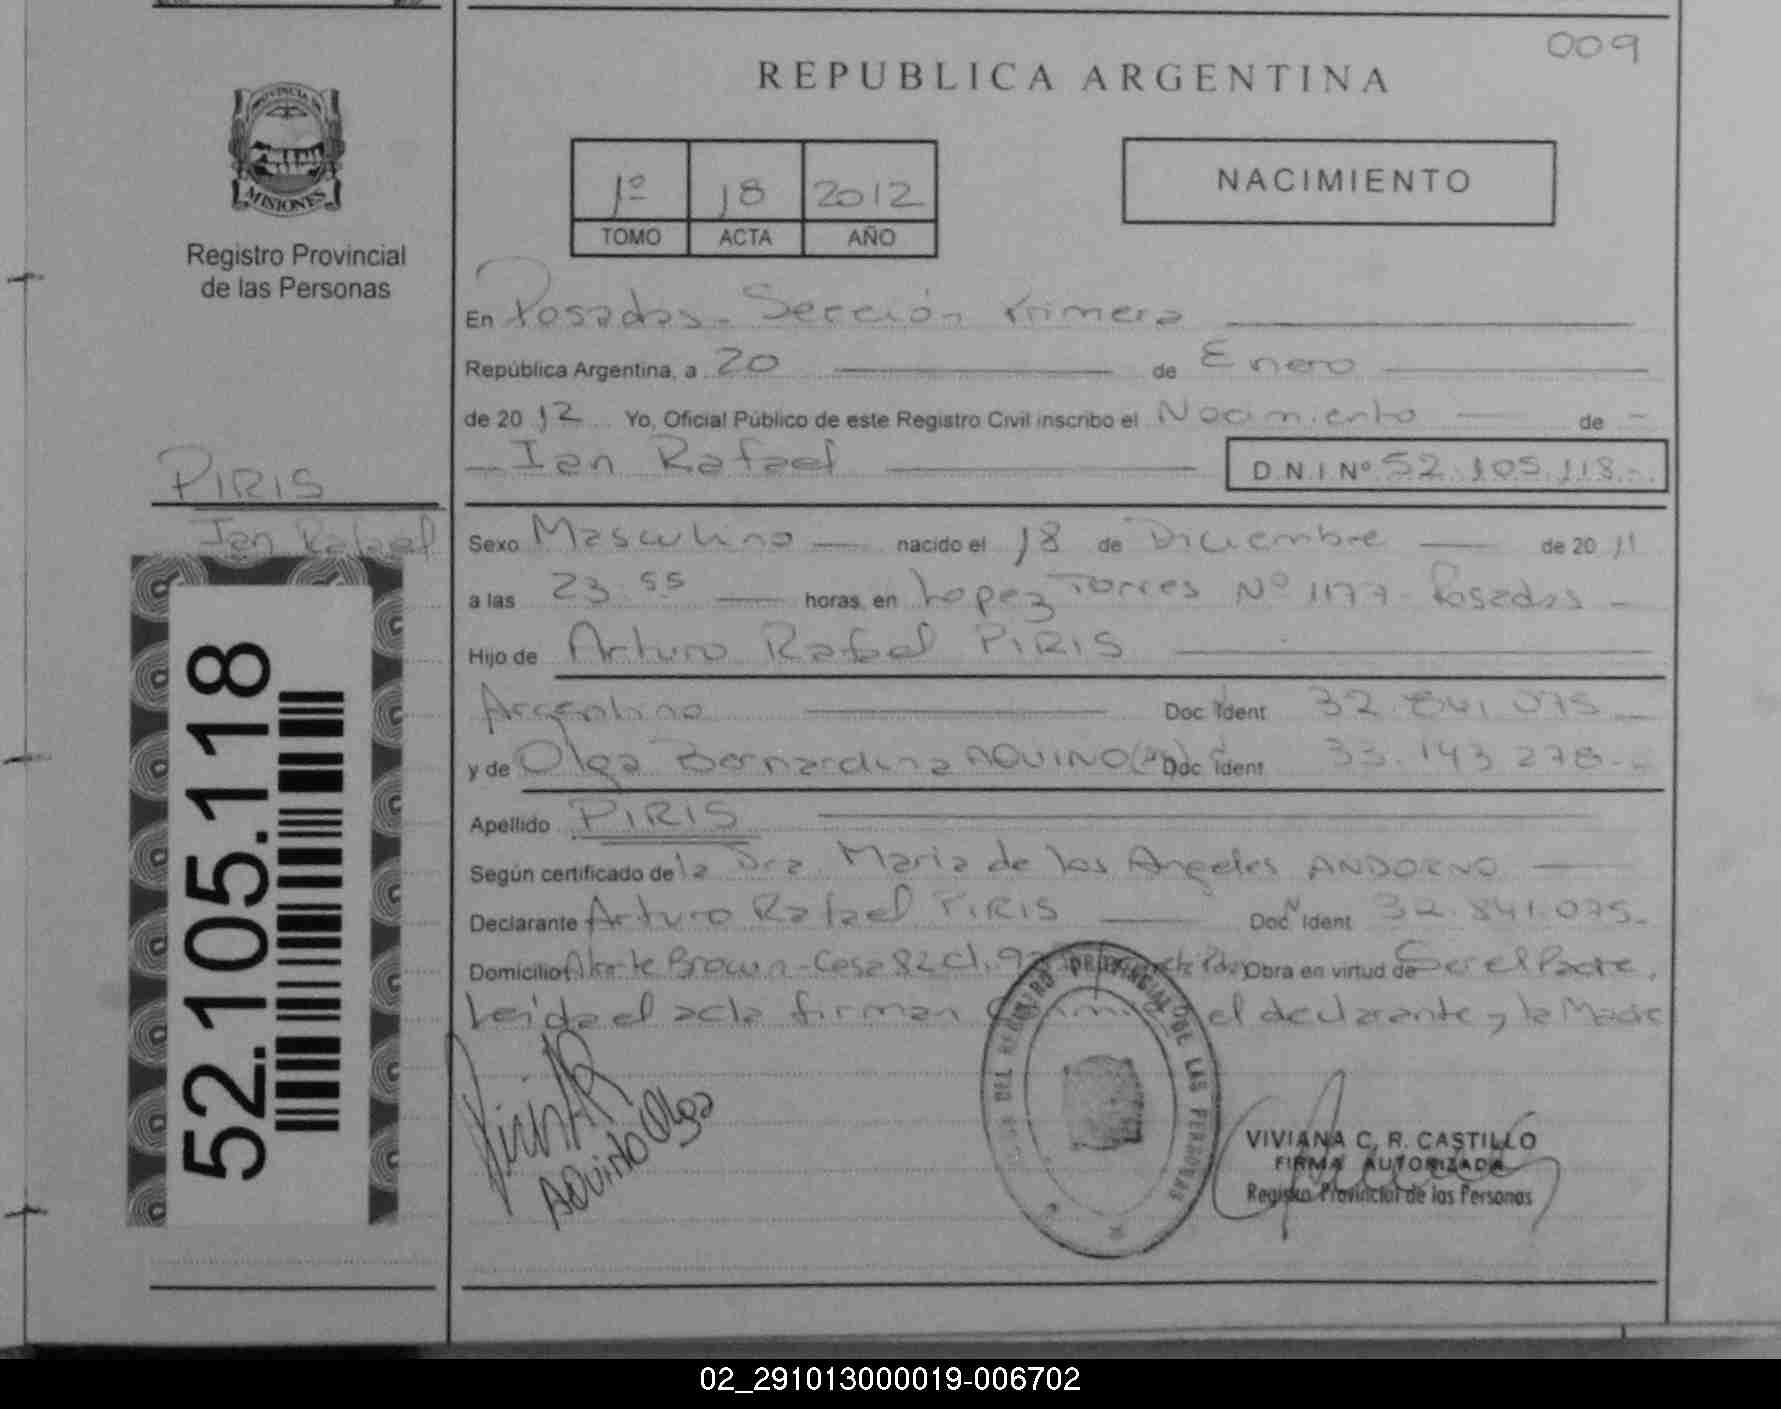 009
REPUBLICA ARGENTINA
PROVINCIA DE
MISIONES
Registro Provincial
de las Personas
1º 18 2012
TOMO ACTA AÑO
NACIMIENTO
En Posadas - Sección Primera
República Argentina, a 20 de Enero
de 2012 Yo, Oficial Público de este Registro Civil inscribo el Nacimiento de
Ian Rafael
D.N.I Nº 52.105.118.-
PIRIS
Ian Rafael
52.105.118
Sexo Masculino nacido el 18 de Diciembre de 2011
a las 23:55 horas, en Lopez Torres Nº 1177 - Posadas -
Hijo de Arturo Rafael PIRIS
Argentino Doc. Ident 32.841.075
y de Olga Bernardina AQUINO Doc. Ident 33.143.278.-
Apellido PIRIS
Según certificado de la Dra. Maria de los Angeles ANDORNO
Declarante Arturo Rafael PIRIS Doc. Ident 32.841.075-
Domicilio Brown - Casa 82 Obra en virtud de Ser el Padre.
Leida el acta firman el declarante y la Madre
Piris AR
AQUINO Olga
DEL REGISTRO PROVINCIAL DE LAS PERSONAS
VIVIANA C. R. CASTILLO
FIRMA AUTORIZADA
Registro Provincial de las Personas
02_291013000019-006702